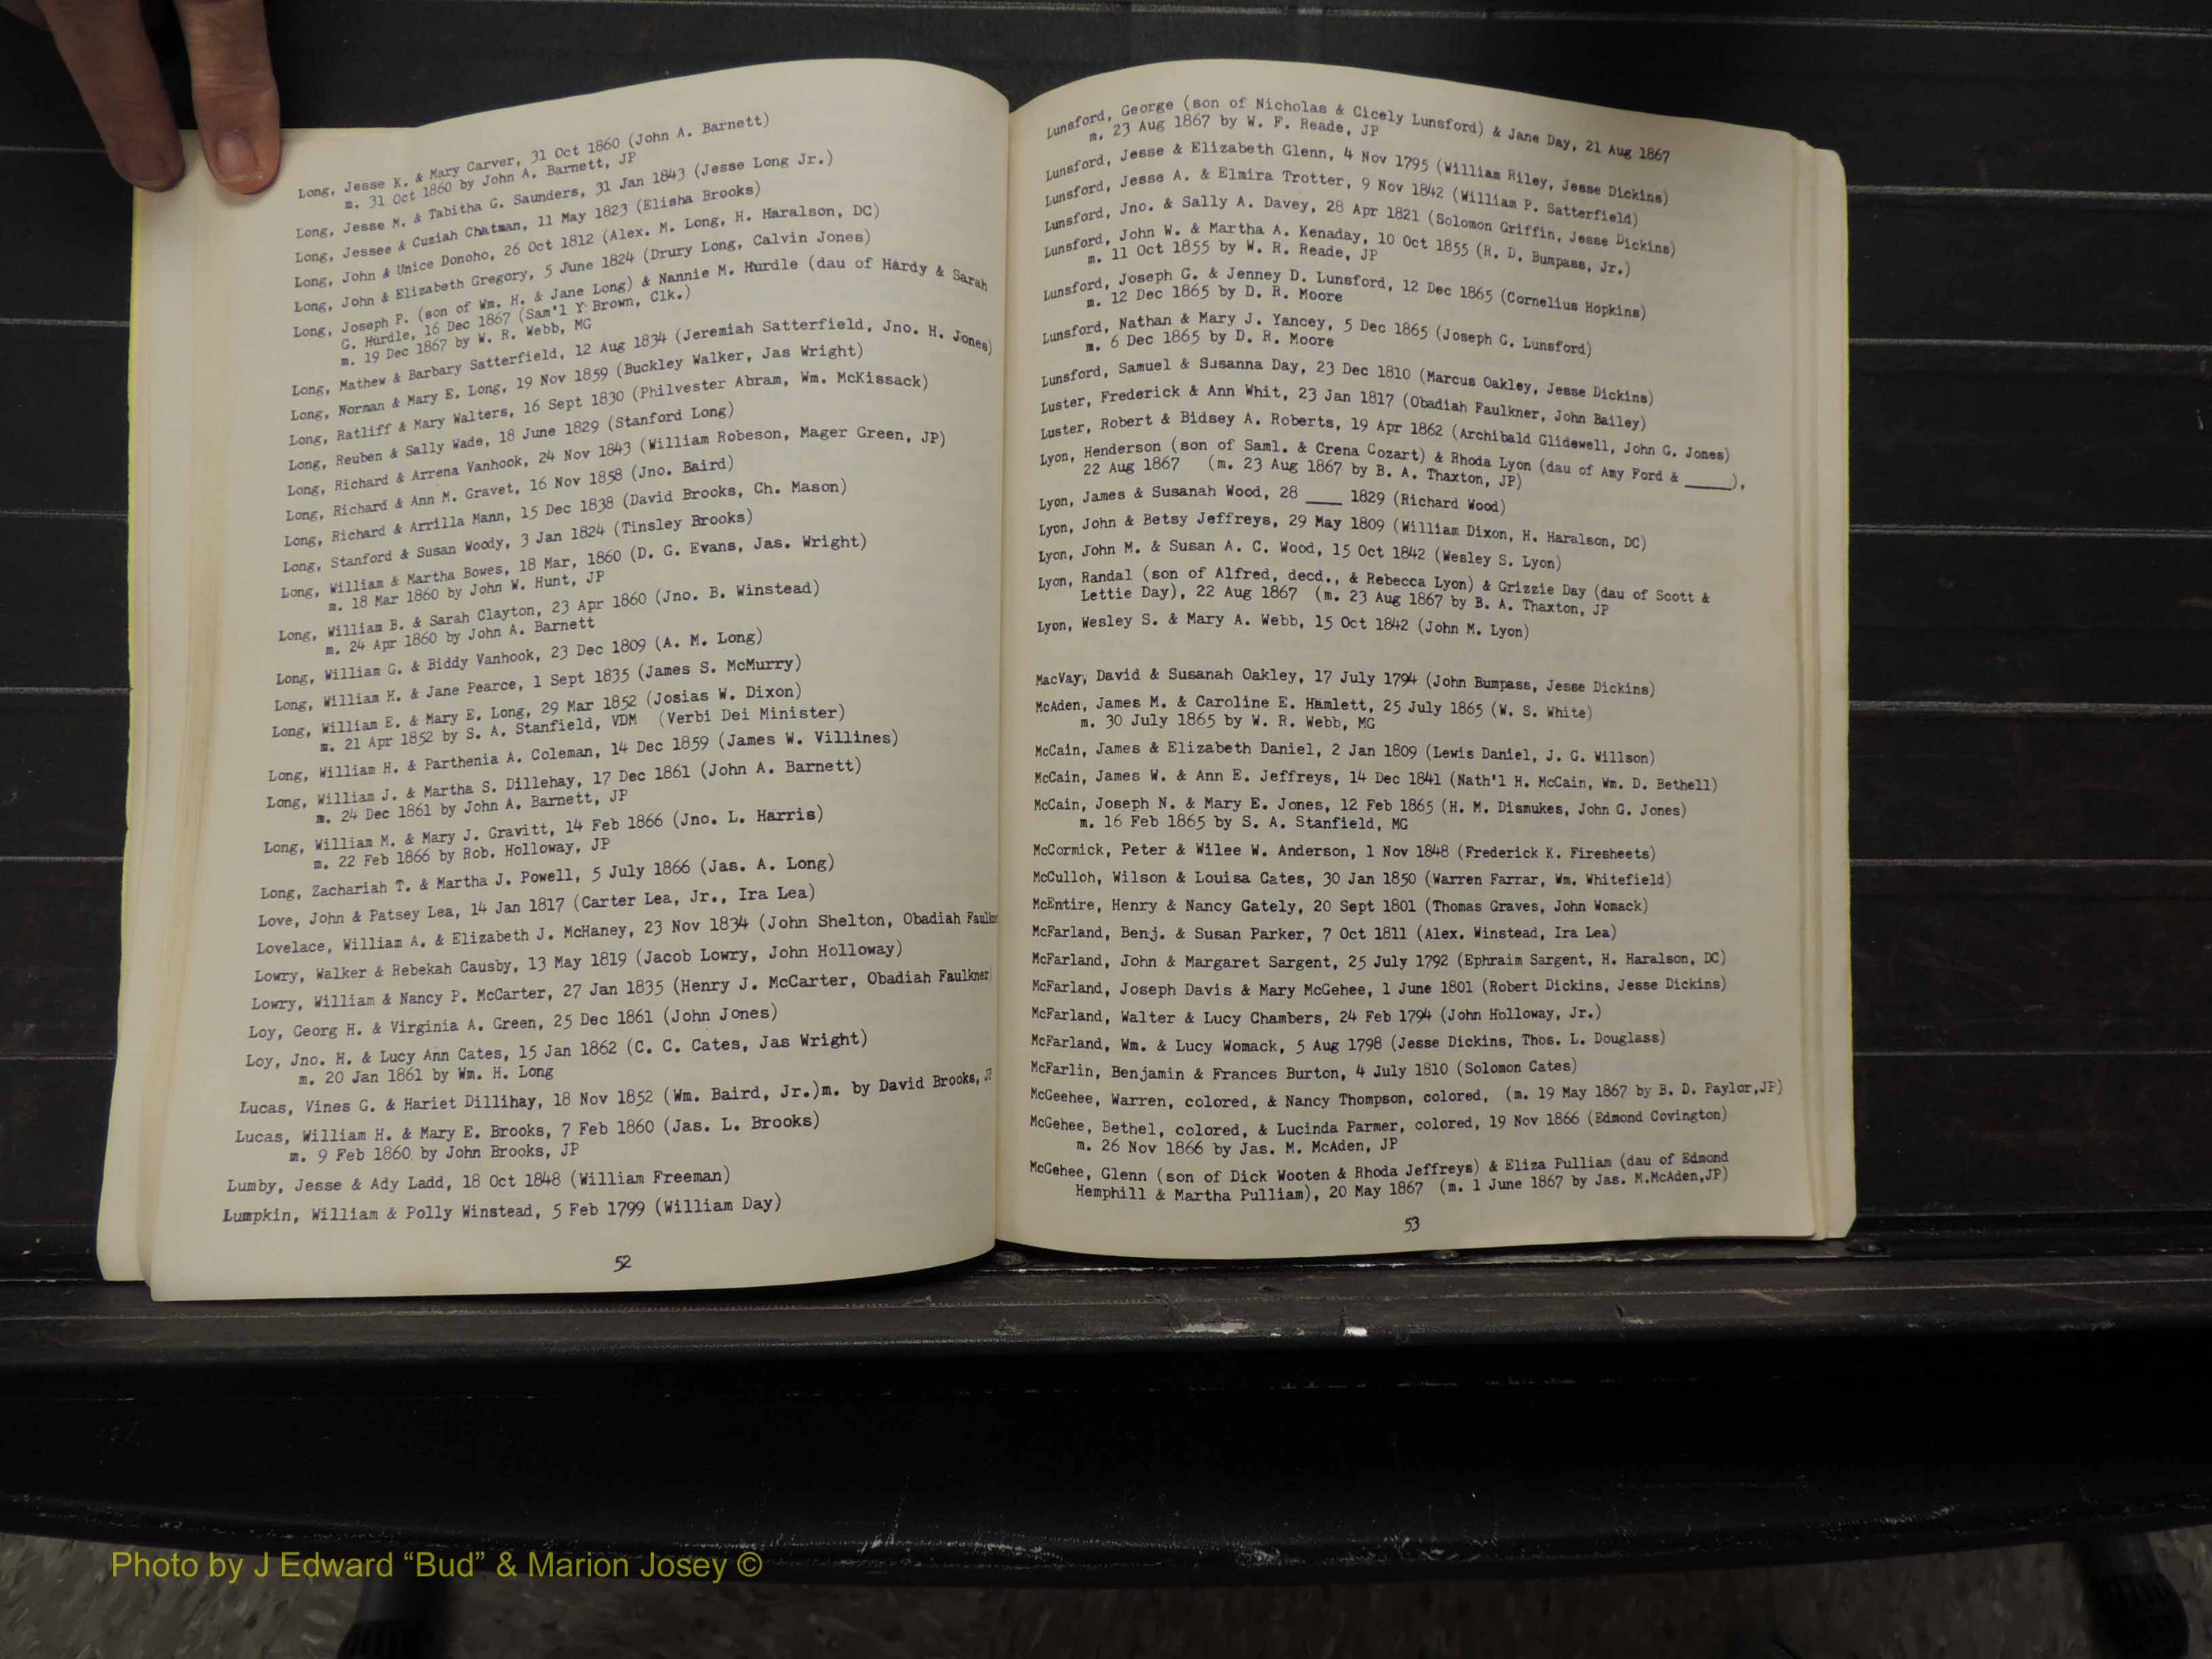 Long, Jesse K. & Mary Carver, 31 Oct 1860 (John A. Barnett)
m. 31 Oct 1860 by John A. Barnett, JP
Long, Jesse M. & Tabitha G. Saunders, 31 Jan 1843 (Jesse Long Jr.)
Long, Jessee & Cuziah Chatman, 11 May 1823 (Elisha Brooks)
Long, John & Unice Donoho, 26 Oct 1812 (Alex. M. Long, H. Haralson, DC)
Long, John & Elizabeth Gregory, 5 June 1824 (Drury Long, Calvin Jones)
Long, Joseph P. (son of Wm. H. & Jane Long) & Nannie M. Hurdle (dau of Hardy & Sarah
G. Hurdle, 16 Dec 1867 (Sam'l Y Brown, Clk.)
m. 19 Dec 1867 by W. R. Webb, MG
Long, Mathew & Barbary Satterfield, 12 Aug 1834 (Jeremiah Satterfield, Jno. H. Jones)
Long, Norman & Mary E. Long, 19 Nov 1859 (Buckley Walker, Jas Wright)
Long, Ratliff & Mary Walters, 16 Sept 1830 (Philvester Abram, Wm. McKissack)
Long, Reuben & Sally Wade, 18 June 1829 (Stanford Long)
Long, Richard & Arrena Vanhook, 24 Nov 1843 (William Robeson, Mager Green, JP)
Long, Richard & Ann M. Gravet, 16 Nov 1858 (Jno. Baird)
Long, Richard & Arrilla Mann, 15 Dec 1838 (David Brooks, Ch. Mason)
Long, Stanford & Susan Woody, 3 Jan 1824 (Tinsley Brooks)
Long, William & Martha Bowes, 18 Mar, 1860 (D. G. Evans, Jas. Wright)
m. 18 Mar 1860 by John W. Hunt, JP
Long, William B. & Sarah Clayton, 23 Apr 1860 (Jno. B. Winstead)
m. 24 Apr 1860 by John A. Barnett
Long, William G. & Biddy Vanhook, 23 Dec 1809 (A. M. Long)
Long, William H. & Jane Pearce, 1 Sept 1835 (James S. McMurry)
Long, William E. & Mary E. Long, 29 Mar 1852 (Josias W. Dixon)
m. 21 Apr 1852 by S. A. Stanfield, VDM (Verbi Dei Minister)
Long, William H. & Parthenia A. Coleman, 14 Dec 1859 (James W. Villines)
Long, William J. & Martha S. Dillehay, 17 Dec 1861 (John A. Barnett)
m. 24 Dec 1861 by John A. Barnett, JP
Long, William M. & Mary J. Gravitt, 14 Feb 1866 (Jno. L. Harris)
m. 22 Feb 1866 by Rob. Holloway, JP
Long, Zachariah T. & Martha J. Powell, 5 July 1866 (Jas. A. Long)
Love, John & Patsey Lea, 14 Jan 1817 (Carter Lea, Jr., Ira Lea)
Lovelace, William A. & Elizabeth J. McHaney, 23 Nov 1834 (John Shelton, Obadiah
Lowry, Walker & Rebekah Causby, 13 May 1819 (Jacob Lowry, John Holloway)
Lowry, William & Nancy P. McCarter, 27 Jan 1835 (Henry J. McCarter, Obadiah Faulkner)
Loy, Georg H. & Virginia A. Green, 25 Dec 1861 (John Jones)
Loy, Jno. H. & Lucy Ann Cates, 15 Jan 1862 (C. C. Cates, Jas Wright)
m. 20 Jan 1861 by Wm. H. Long
Lucas, Vines G. & Hariet Dillihay, 18 Nov 1852 (Wm. Baird, Jr.)m. by David Brooks,
Lucas, William H. & Mary E. Brooks, 7 Feb 1860 (Jas. L. Brooks)
m. 9 Feb 1860 by John Brooks, JP
Lumby, Jesse & Ady Ladd, 18 Oct 1848 (William Freeman)
Lumpkin, William & Polly Winstead, 5 Feb 1799 (William Day)
52
Lunsford, George (son of Nicholas & Cicely Lunsford) & Jane Day, 21 Aug 1867
m. 23 Aug 1867 by W. F. Reade, JP
Lunsford, Jesse & Elizabeth Glenn, 4 Nov 1795 (William Riley, Jesse Dickins)
Lunsford, Jesse A. & Elmira Trotter, 9 Nov 1842 (William P. Satterfield)
Lunsford, Jno. & Sally A. Davey, 28 Apr 1821 (Solomon Griffin, Jesse Dickins)
Lunsford, John W. & Martha A. Kenaday, 10 Oct 1855 (R. D. Bumpass, Jr.)
m. 11 Oct 1855 by W. R. Reade, JP
Lunsford, Joseph G. & Jenney D. Lunsford, 12 Dec 1865 (Cornelius Hopkins)
m. 12 Dec 1865 by D. R. Moore
Lunsford, Nathan & Mary J. Yancey, 5 Dec 1865 (Joseph G. Lunsford)
m. 6 Dec 1865 by D. R. Moore
Lunsford, Samuel & Susanna Day, 23 Dec 1810 (Marcus Oakley, Jesse Dickins)
Luster, Frederick & Ann Whit, 23 Jan 1817 (Obadiah Faulkner, John Bailey)
Luster, Robert & Bidsey A. Roberts, 19 Apr 1862 (Archibald Glidewell, John G. Jones)
Lyon, Henderson (son of Saml. & Crena Cozart) & Rhoda Lyon (dau of Amy Ford & _____),
22 Aug 1867 (m. 23 Aug 1867 by B. A. Thaxton, JP)
Lyon, James & Susanah Wood, 28 ____ 1829 (Richard Wood)
Lyon, John & Betsy Jeffreys, 29 May 1809 (William Dixon, H. Haralson, DC)
Lyon, John M. & Susan A. C. Wood, 15 Oct 1842 (Wesley S. Lyon)
Lyon, Randal (son of Alfred, decd., & Rebecca Lyon) & Grizzie Day (dau of Scott &
Lettie Day), 22 Aug 1867 (m. 23 Aug 1867 by B. A. Thaxton, JP
Lyon, Wesley S. & Mary A. Webb, 15 Oct 1842 (John M. Lyon)
MacVay, David & Susanah Oakley, 17 July 1794 (John Bumpass, Jesse Dickins)
McAden, James M. & Caroline E. Hamlett, 25 July 1865 (W. S. White)
m. 30 July 1865 by W. R. Webb, MG
McCain, James & Elizabeth Daniel, 2 Jan 1809 (Lewis Daniel, J. G. Willson)
McCain, James W. & Ann E. Jeffreys, 14 Dec 1841 (Nath'l H. McCain, Wm. D. Bethell)
McCain, Joseph N. & Mary E. Jones, 12 Feb 1865 (H. M. Dismukes, John G. Jones)
m. 16 Feb 1865 by S. A. Stanfield, MG
McCormick, Peter & Wilee W. Anderson, 1 Nov 1848 (Frederick K. Firesheets)
McCulloh, Wilson & Louisa Cates, 30 Jan 1850 (Warren Farrar, Wm. Whitefield)
McEntire, Henry & Nancy Gately, 20 Sept 1801 (Thomas Graves, John Womack)
McFarland, Benj. & Susan Parker, 7 Oct 1811 (Alex. Winstead, Ira Lea)
McFarland, John & Margaret Sargent, 25 July 1792 (Ephraim Sargent, H. Haralson, DC)
McFarland, Joseph Davis & Mary McGehee, 1 June 1801 (Robert Dickins, Jesse Dickins)
McFarland, Walter & Lucy Chambers, 24 Feb 1794 (John Holloway, Jr.)
McFarland, Wm. & Lucy Womack, 5 Aug 1798 (Jesse Dickins, Thos. L. Douglass)
McFarlin, Benjamin & Frances Burton, 4 July 1810 (Solomon Cates)
McGeehee, Warren, colored, & Nancy Thompson, colored, (m. 19 May 1867 by B. D. Paylor,JP)
McGehee, Bethel, colored, & Lucinda Parmer, colored, 19 Nov 1866 (Edmond Covington)
m. 26 Nov 1866 by Jas. M. McAden, JP
McGehee, Glenn (son of Dick Wooten & Rhoda Jeffreys) & Eliza Pulliam (dau of Edmond
Hemphill & Martha Pulliam), 20 May 1867 (m. 1 June 1867 by Jas. M.McAden,JP)
53
Photo by J Edward “Bud” & Marion Josey ©